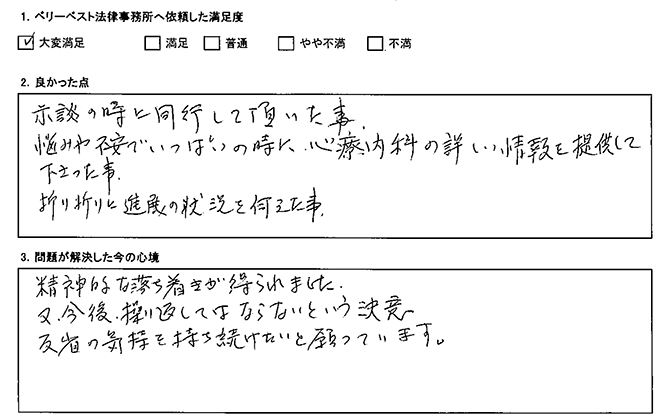 1. ベリーベスト法律事務所へ依頼した満足度
☑ 大変満足 □ 満足 □ 普通 □ やや不満 □ 不満
2. 良かった点
示談の時に同行して頂いた事.
悩みや不安でいっぱいの時に、心療内科の詳しい情報を提供して
下さった事.
折り折りに進展の状況を伺えた事.
3. 問題が解決した今の心境
精神的な落ち着きが得られました.
又、今後、繰り返してはならないという決意
反省の気持を持ち続けたいと願っています。